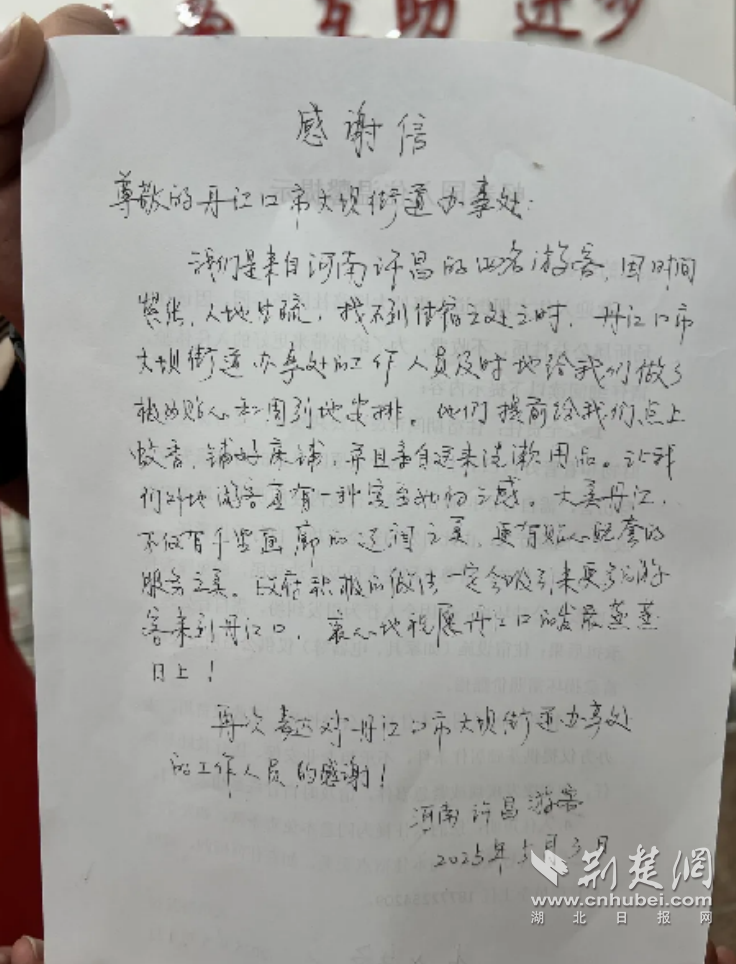 互助 进步
感谢信
尊敬的丹江口市大坝街道办事处:
我们是来自河南许昌的四名游客,因时间
紧张,人地生疏,找不到住宿之处之时,丹江口市
大坝街道办事处的工作人员及时地给我们做了
极的贴心和周到地安排。他们提前给我们点上
蚊香,铺好床铺,并且亲自送来洗漱用品。让我
们外地游客真有一种宾至如归之感。大美丹江,
不仅有千里画廊的辽阔之美,更有贴心配套的
服务之美。政府积极的做法一定会吸引来更多的游
客来到丹江口,衷心地祝愿丹江口的发展蒸蒸
日上!
再次表达对丹江口市大坝街道办事处
的工作人员的感谢!
河南许昌游客
2025年5月3日
荆楚网
www.cnhubei.com
湖北日报网